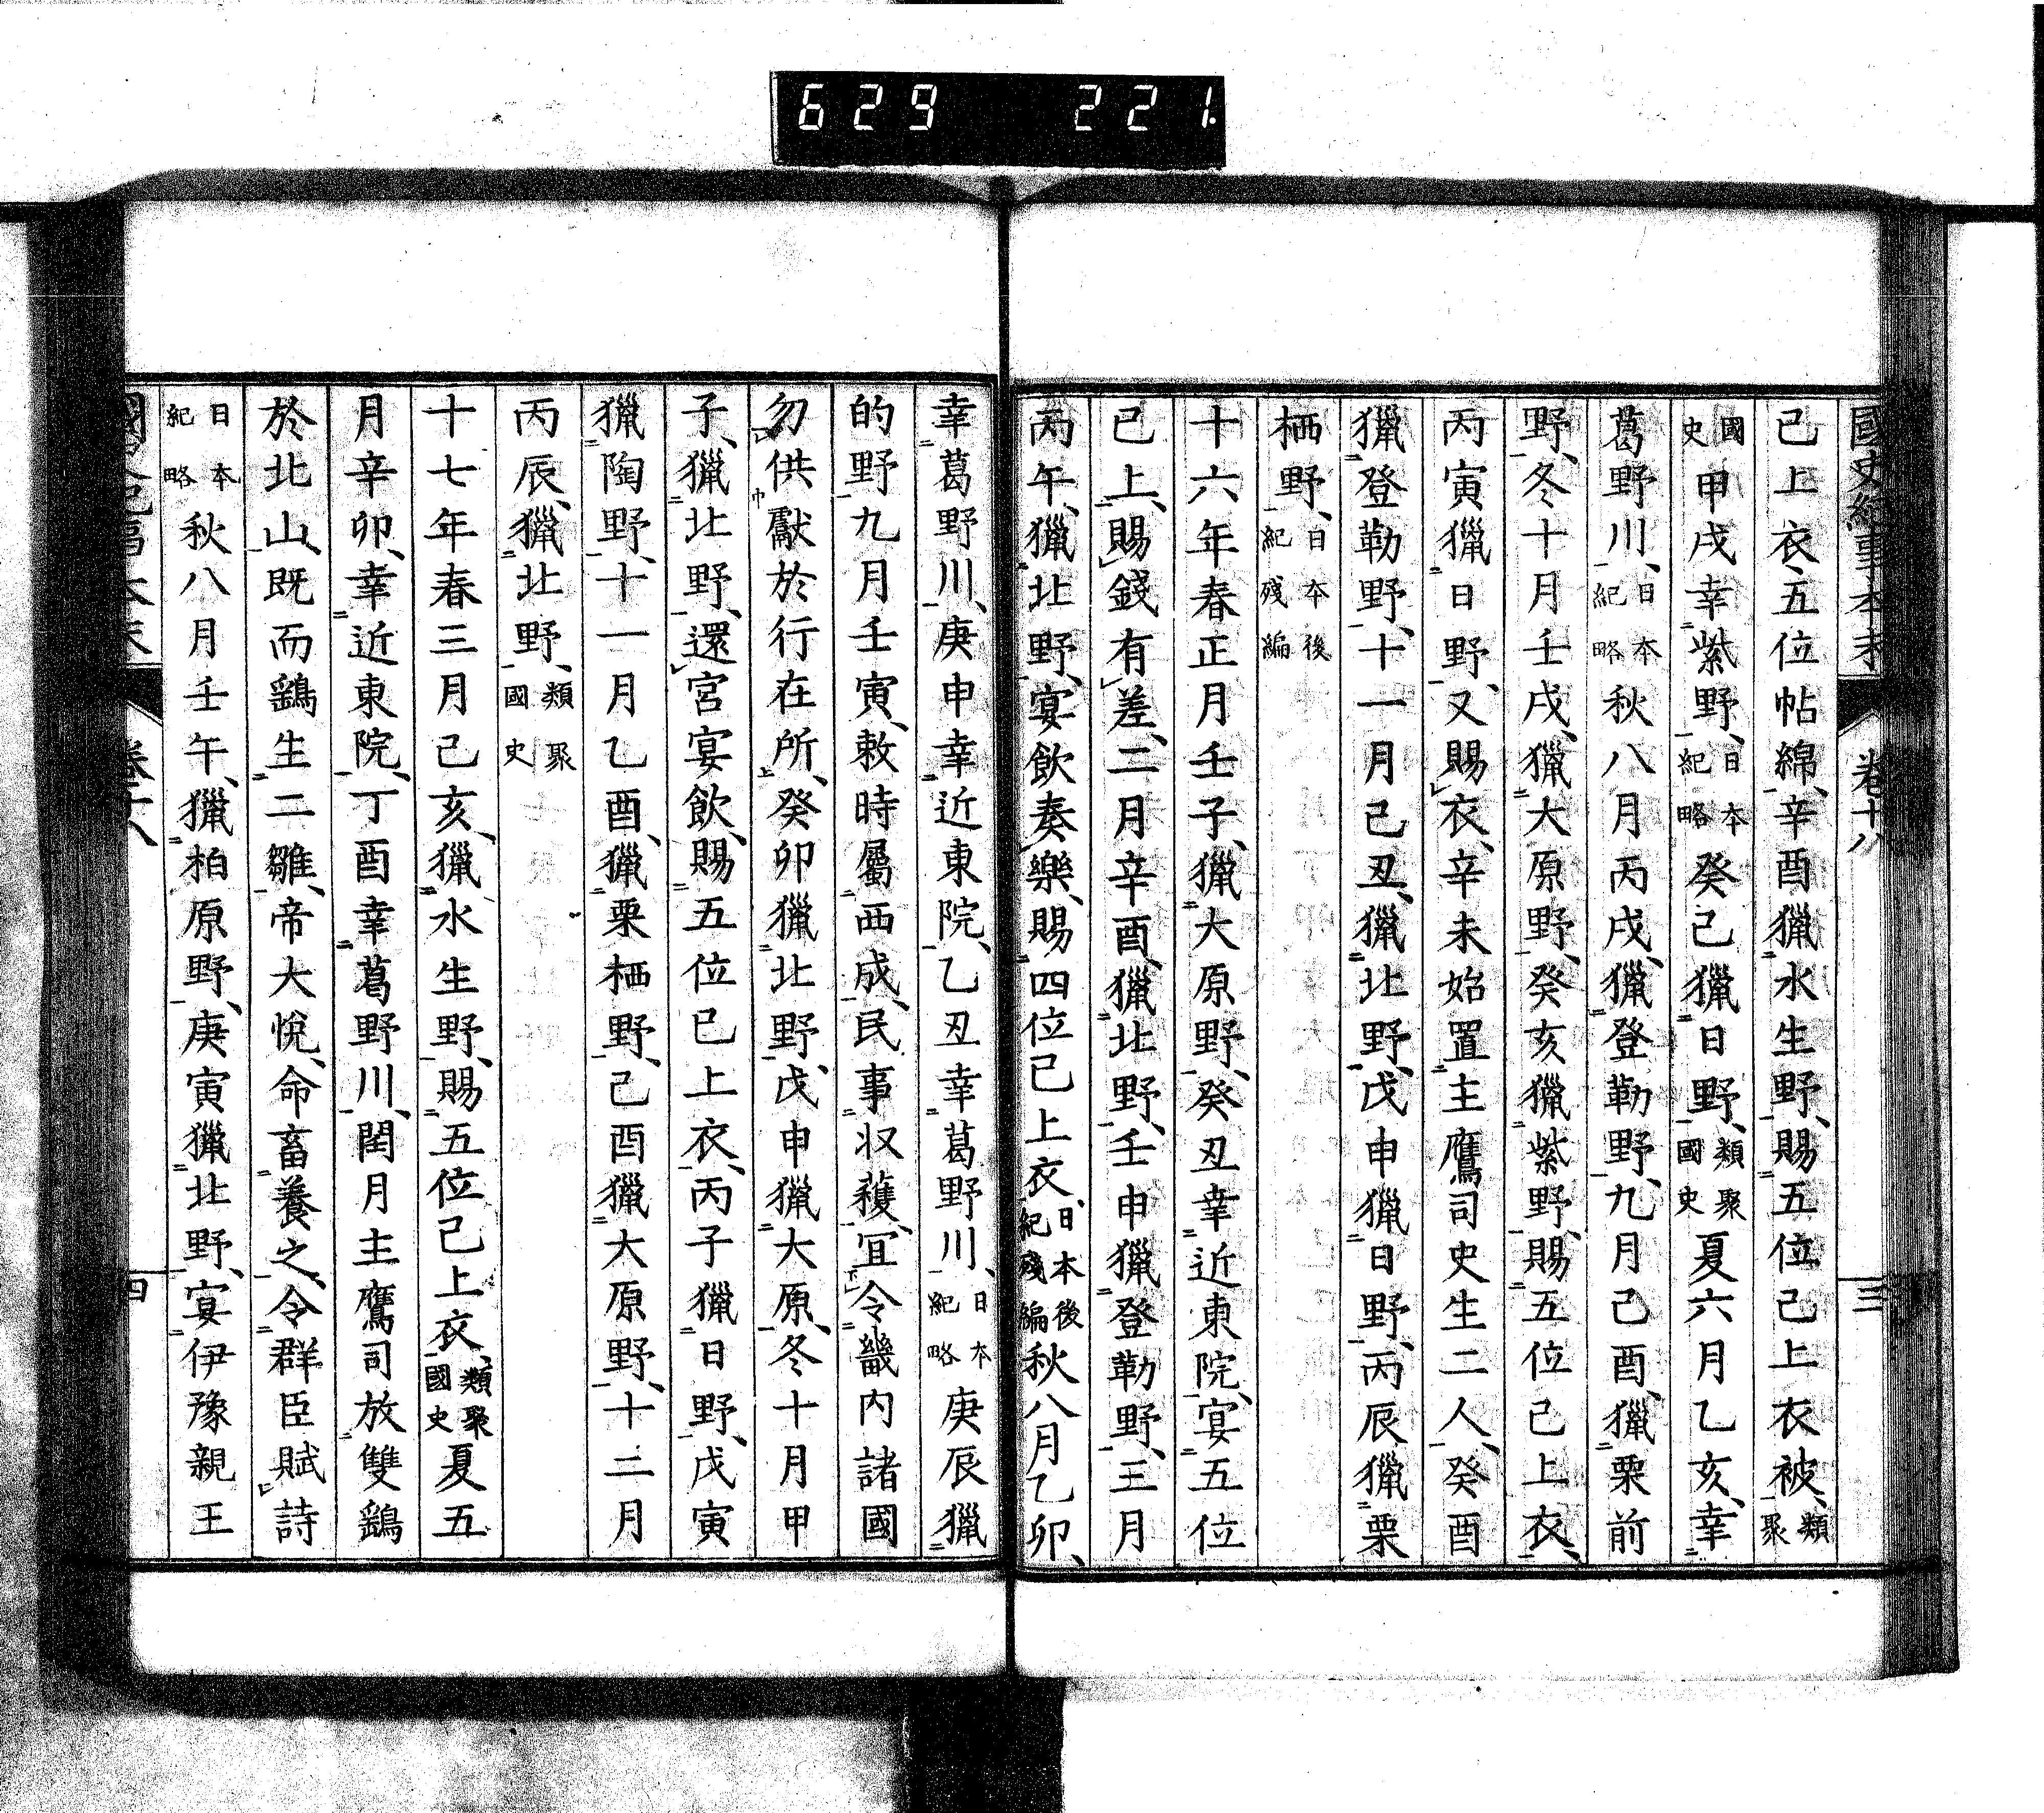 629 221.
國史紀事本末 卷十八 三
己上衣、五位帖綿、辛酉獵水生野、賜五位己上衣被、類聚
國史甲戌幸紫野、日本紀略癸己獵日野、類聚國史夏六月乙亥、幸
葛野川、日本紀略秋八月丙戌、獵登勒野、九月己酉、獵栗前
野、冬十月壬戌、獵大原野、癸亥獵紫野、賜五位己上衣、
丙寅獵日野、又賜衣、辛未始置主鷹司史生二人、癸酉
獵登勒野、十一月己丑、獵北野、戊申獵日野、丙辰獵栗
栖野、日本後紀殘編
十六年春正月壬子、獵大原野、癸丑幸近東院、宴五位
己上、賜錢有差、二月辛酉、獵北野、壬申獵登勒野、三月
丙午、獵北野、宴飲奏樂、賜四位己上衣、日本後紀殘編秋八月乙卯、
幸葛野川、庚申幸近東院、乙丑幸葛野川、日本紀略庚辰獵
的野九月壬寅、敕時屬西成、民事収穫、宜令畿内諸國
勿供獻於行在所、癸卯獵北野、戊申獵大原、冬十月甲
子、獵北野、還宮宴飲、賜五位已上衣、丙子獵日野、戊寅
獵陶野、十一月乙酉、獵栗栖野、己酉獵大原野、十二月
丙辰、獵北野、類聚國史
十七年春三月己亥、獵水生野、賜五位己上衣、類聚國史夏五
月辛卯、幸近東院、丁酉幸葛野川、閏月主鷹司放雙鷂
於北山、既而鷂生二雛、帝大悅、命畜養之、令群臣賦詩
日本紀略秋八月壬午、獵柏原野、庚寅獵北野、宴伊豫親王
卷十八 四